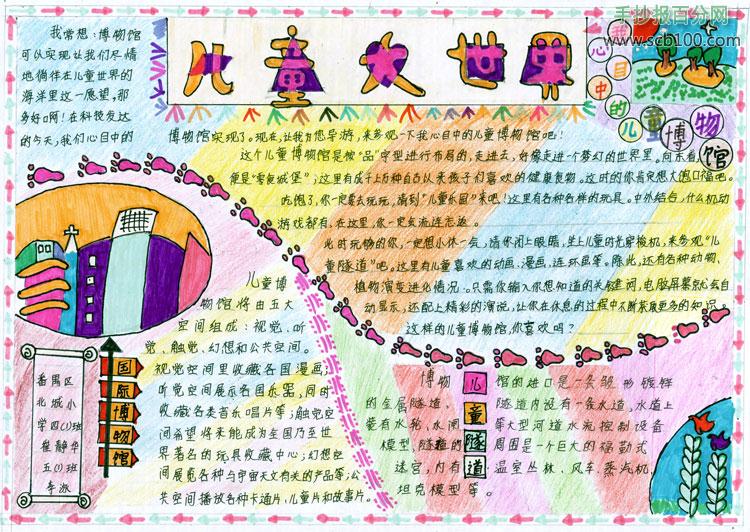 手抄报百分网
www.scb100.com
儿童大世界
我心目中的儿童博物馆
我常想：博物馆
可以实现让我们尽情
地倘佯在儿童世界的
海洋里这一愿望，那
多好啊！在科技发达
的今天，我们心目中的
博物馆实现了。现在，让我为您导游，来参观一下我心目中的儿童博物馆吧！
这个儿童博物馆是按"品"字型进行布局的，走进去，好像走进一个梦幻的世界里。向东看，
便是"零食城堡"；这里有成千上万种自古以来孩子们喜欢的健康食物。这时的你肯定想大饱口福吧。
吃饱了，你一定要去玩玩，请到"儿童乐园"来吧！这里有各种各样的玩具。中外结合，什么机动
游戏都有，在这里，你一定会流连忘返。
此时玩够的你，一定想小休一会，请你闭上眼睛，坐上儿童时光穿梭机，来参观"儿
童隧道"吧。这里有儿童喜欢的动画、漫画、连环画等。除此，还有各种动物、
植物演变进化情况。只需你输入你想知道的关键词，电脑屏幕就会自
动显示，还配上精彩的演说，让你在休息的过程中不断索取更多的知识。
这样的儿童博物馆，你喜欢吗？
儿童博
物馆将由五大
空间组成：视觉、听
觉、触觉、幻想和公共空间。
视觉空间里收藏各国漫画；
听觉空间展示各国乐器，同时
收藏名老音乐唱片等；触觉空
间希望将来能成为全国乃至世
界著名的玩具收藏中心；幻想空
间展览各种与宇宙天文有关的产品等；公
共空间播放各种卡通片、儿童片和故事片。
国际博物馆
番禺区
北城小
学四(1)班
崔静华
五(1)班
李派
儿童隧道
博物馆的进口是一条能够旋转
的金属隧道、隧道内设有一条水道，水道上
装有水轮、水闸等大型河道水流控制设备
模型，隧道的周围是一个巨大的福勒式
迷宫，内有温室丛林、风车、蒸汽机、
坦克模型等。